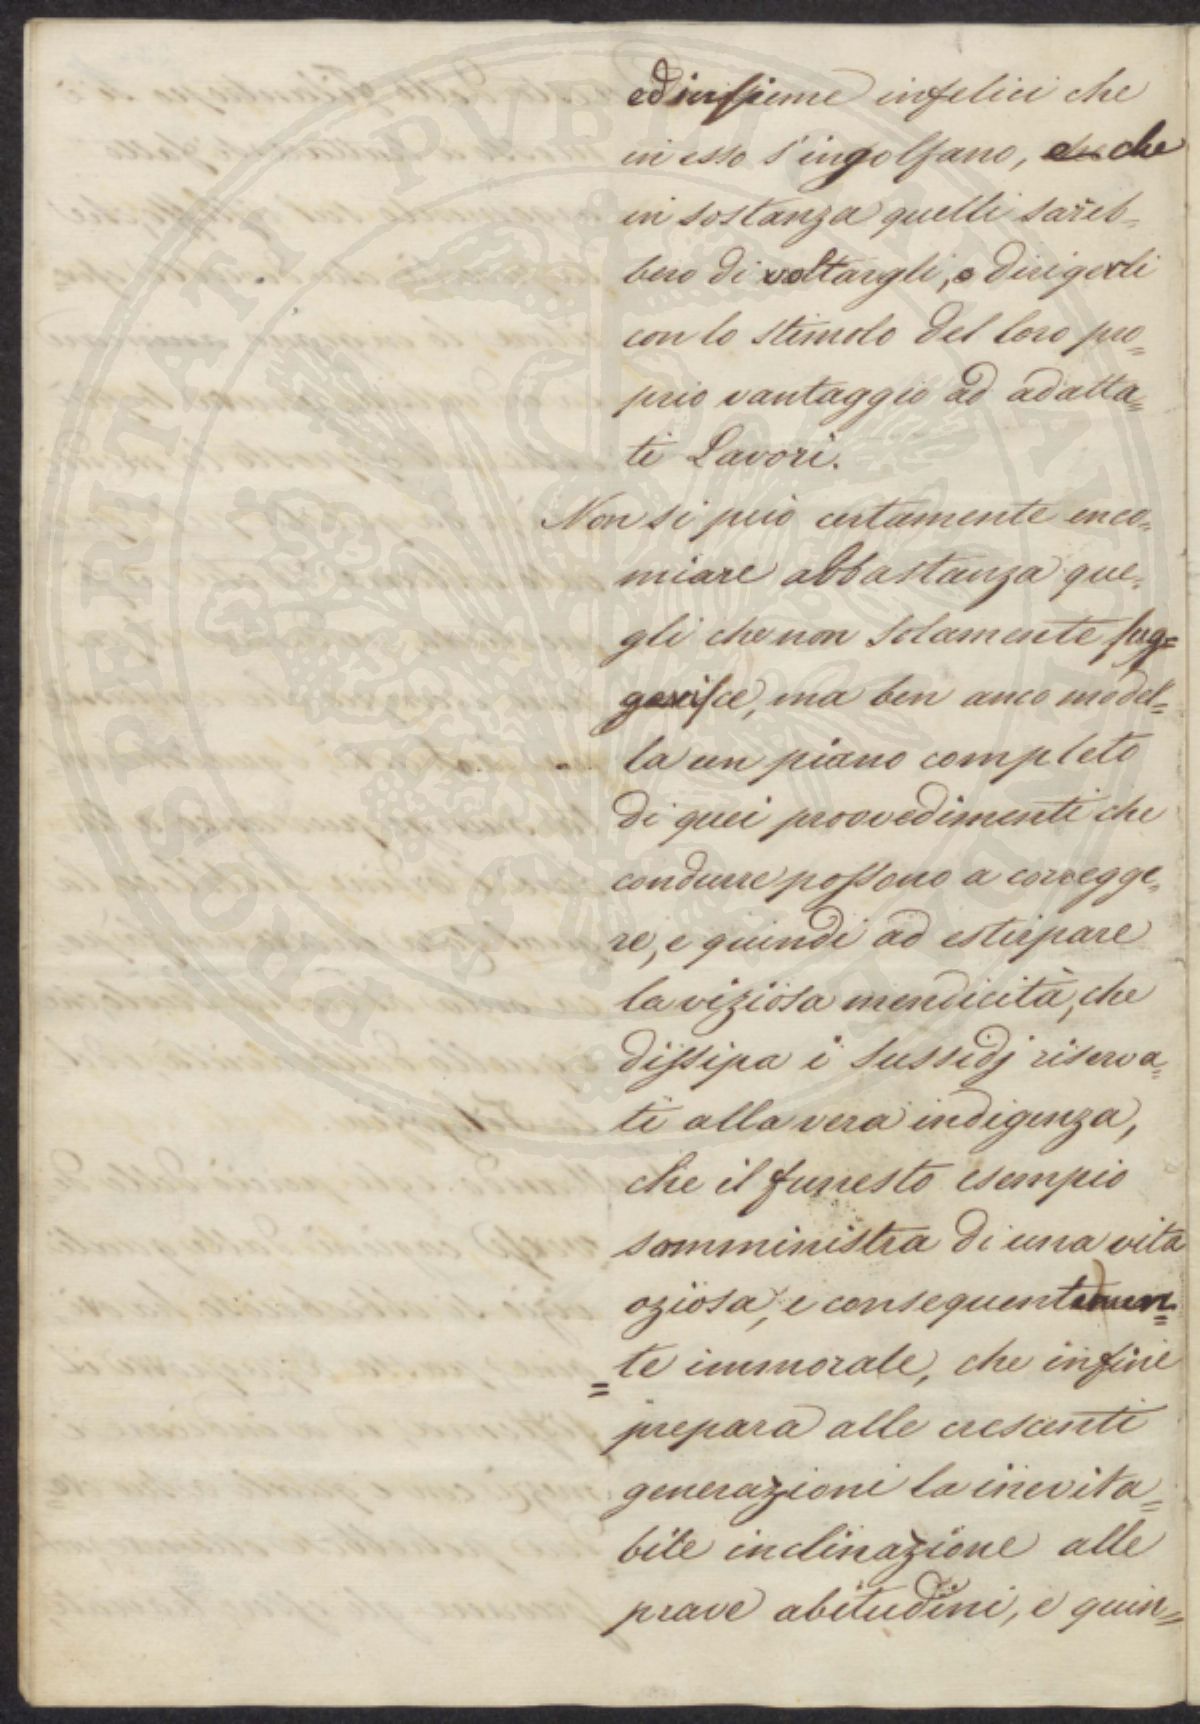 ed insieme infelici che
in esso s'ingolfano, che
in sostanza quelli sareb=
bero di voltargli, e dirigerli
con lo stimolo del loro pro=
prio vantaggio ad adatta=
ti Lavori.
Non si può certamente enco=
miare abbastanza que=
gli che non solamente sug=
gerisce, ma ben anco model=
la un piano completo
di quei provvedimenti che
condurre possono a corregge=
re, e quindi ad estirpare
la viziosa mendicità, che
dissipa i sussidj riserva=
ti alla vera indigenza,
che il funesto esempio
somministra di una vita
oziosa, e conseguentemen=
=te immorale, che infine
prepara alle crescenti
generazioni la inevita=
bile inclinazione alle
prave abitudini, e quin=
PROSPERITATI PUBLICAE